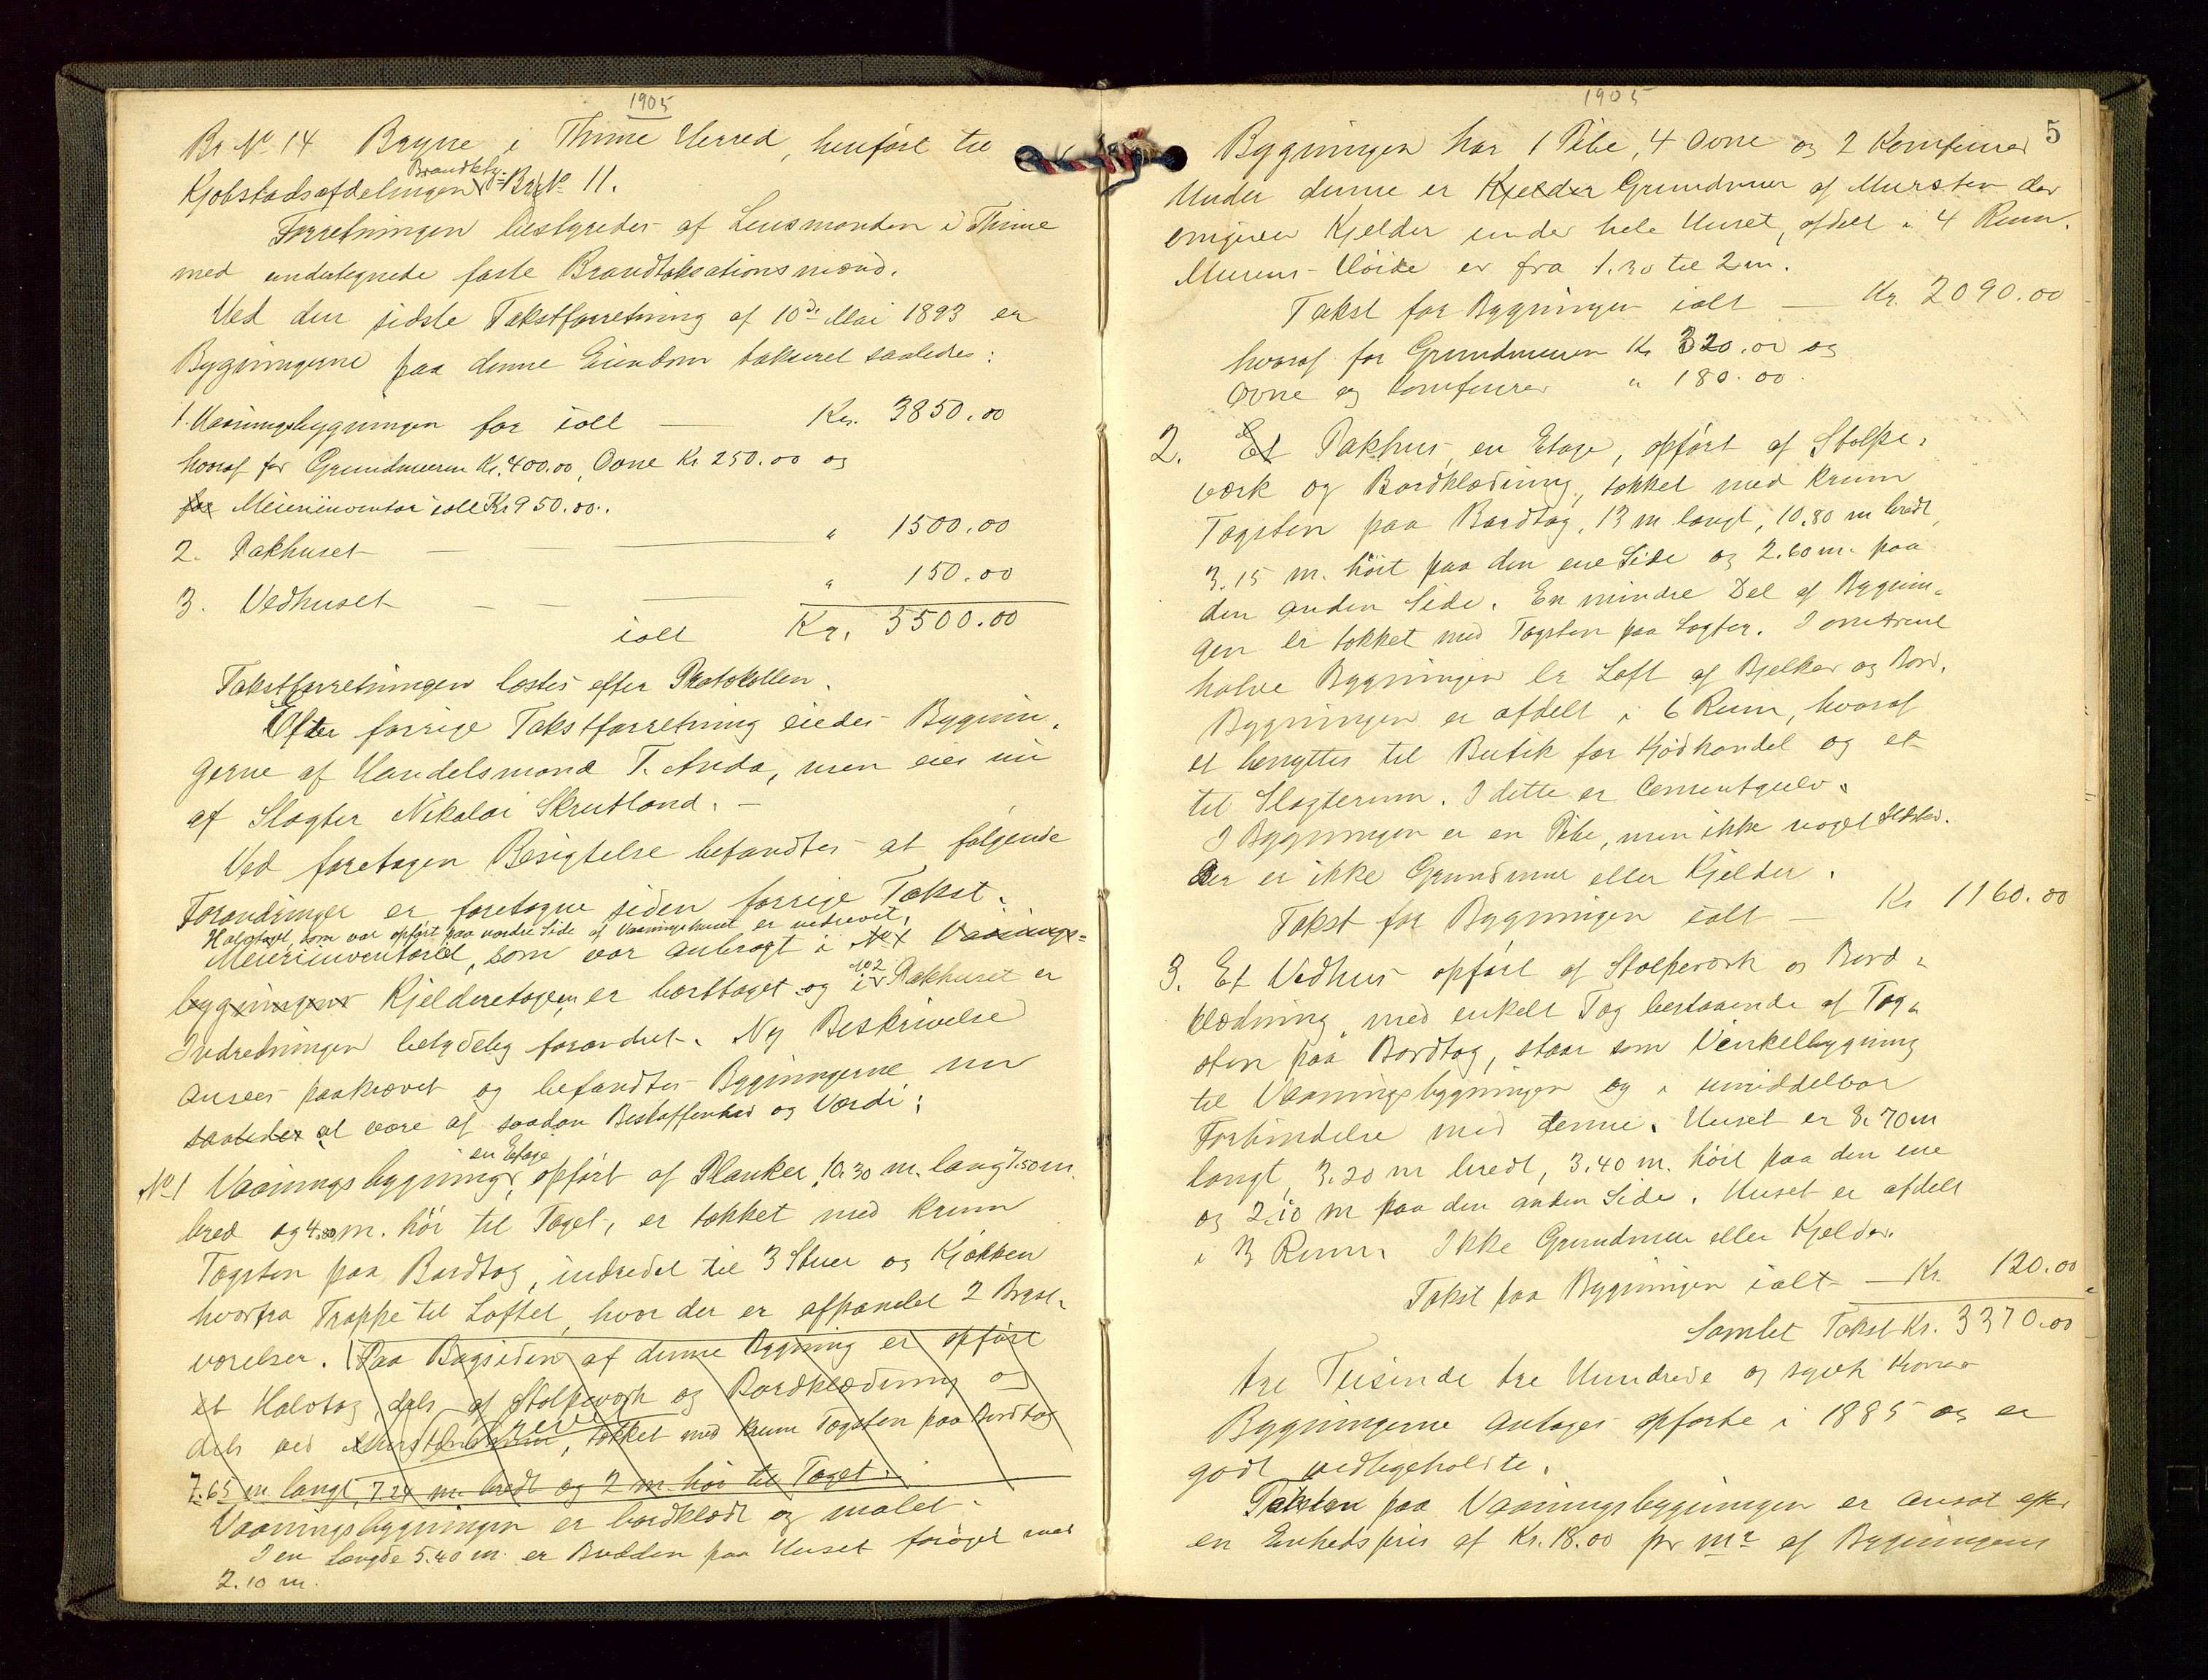 1905
Br. No. 14 Bryne i Thime Herred, henført til
Kjøbstadsafdelingen Brandktg. Br.No. 11.
Forretningen bestyredes af Lensmanden i Thime
med undertegnede faste Brandtakstationsmænd.
Ved den sidste Takstforretning af 10de Mai 1893 er
Bygningerne paa denne Eiendom takseret saaledes:
1. Vaaningsbygningen for ialt — Kr. 3850.00
hvoraf for Grundmuren Kr. 400.00, Ovne Kr 250.00 og
for Meieriinventar ialt Kr 950.00.
2. Pakhuset — — " 1500.00
3. Vedhuset — — — " 150.00
ialt Kr. 5500.00
Takstforretningen læstes efter Protokollen.
Efter forrige Takstforretning eiedes Bygnin-
gerne af Handelsmand T. Anda, men eies nu
af Slagter Nikolai Skretland. —
Ved foretagen Besigtelse befandtes at følgende
Forandringer er foretagne siden forrige Takst.
Halvtaget, som var opført paa nordre Side af Vaaningshuset er nedrevet,
Meieriinventariet, som var anbragt i No 1 Vaanings=
bygningens Kjelderetagen, er borttaget og i No 2 Pakhuset er
Indretningen betydelig forandret. Ny Beskrivelse
ansees paakrævet og befandtes Bygningerne nu
saaledes at være af saadan Beskaffenhed og Værdi:
No 1 Vaaningsbygning, en Etage, opført af Planker, 10.30 m. lang 7.50 m.
bred og 4.80 m. høi til Taget, er tækket med krum
Tagsten paa Bordtag, indredet til 3 Stuer og Kjøkken
hvorfra Trappe til Loftet, hvor der er afpanelet 2 Brøst-
værelser. Paa Bagsiden af denne Bygning er opført
et Halvtag, dels af Stolpeværk og Bordklædning og
dels ved , tækket med krum Tagsten paa Bordtag
7.65 m langt, 7.24 m. bredt og 2 m. høi til Taget.
Vaaningsbygningen er bordklædt og malet.
I en Længde 5.40 m. er Bredden paa Huset forøget med
2.10 m.
1905
5
Bygningen har 1 Pibe, 4 Ovne og 2 Komfurer
Under denne er Kjelder Grundmur af Mursten der
omgiver Kjelder under hele Huset, afdelt i 4 Rum.
Murens Høide er fra 1.30 til 2 m.
Takst for Bygningen ialt — Kr. 2090.00
hvoraf for Grundmuren Kr 320.00 og
Ovne og Komfurer " 180.00.
2. Et Pakhus en Etage, opført af Stolpe-
værk og Bordklædning, tækket med krum
Tagsten paa Bordtag, 13 m langt, 10.80 m bredt,
3.15 m. høit paa den ene Side og 2.60 m. paa
den anden Side. En mindre Del af Bygnin-
gen er tækket med Tagsten paa Lægter. I omtrent
halve Bygningen er Loft af Bjelker og Bord.
Bygningen er afdelt i 6 Rum, hvoraf
et benyttes til Butik for Kjødhandel og et
til Slagterum. I dette er Cementgulv.
I Bygningen er en Pibe, men ikke noget Ildsted.
Der er ikke Grundmur eller Kjelder.
Takst for Bygningen ialt — Kr 1160.00
3. Et Vedhus opført af Stolpeværk og Bord-
klædning, med enkelt Tag bestaaende af Tag-
sten paa Bordtag, staar som Vinkelbygning
til Vaaningsbygningen og i umiddelbar
Forbindelse med denne. Huset er 8.70 m
langt, 3.20 m bredt, 3.40 m. høit paa den ene
og 2.10 m paa den anden Side. Huset er afdelt
i 3 Rum. Ikke Grundmur eller Kjelder.
Takst paa Bygningen ialt — Kr. 120.00
Samlet Takst Kr. 3370.00
tre Tusinde tre Hundrede og sytti Kroner
Bygningerne antages opførte i 1885 og er
godt vedligeholdte.
Taksten paa Vaaningsbygningen er ansat efter
en Enhedspris af Kr. 18.00 pr m2 af Bygningens